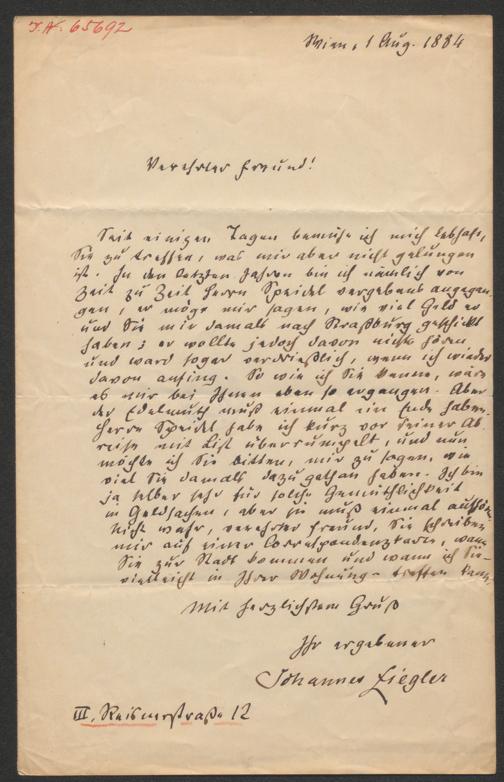 I.N. 65692
Wien, 1 Aug. 1884
Verehrter Freund!
Seit einigen Tagen bemühe ich mich lebhaft,
Sie zu treffen, was mir aber nicht gelungen
ist. In den letzten Jahren bin ich nämlich von
Zeit zu Zeit Herrn Speidel vergebens angegan-
gen, er möge mir sagen, wie viel Geld er
und Sie mir damals nach Straßburg geschickt
haben; er wollte jedoch davon nichts hören
und ward sogar verdrießlich, wenn ich wieder
davon anfing. So wie ich Sie kenne, wäre
es mir bei Ihnen eben so ergangen. Aber
der Edelmuth muß einmal ein Ende haben.
Herrn Speidel habe ich kurz vor seiner Ab-
reise mit List überrumpelt, und nun
möchte ich Sie bitten, mir zu sagen, wie
viel Sie damals dazu gethan haben. Ich bin
ja selber sehr für solche Gemüthlichkeit
in Geldsachen, aber sie muß einmal aufhören.
Nicht wahr, verehrter Freund, Sie schreiben
mir auf einer Correspondenzkarte, wann
Sie zur Stadt kommen und wann ich Sie -
vielleicht in Ihrer Wohnung - treffen kann.
Mit herzlichstem Gruß
Ihr ergebener
Johannes Ziegler
III, Reisnerstraße 12